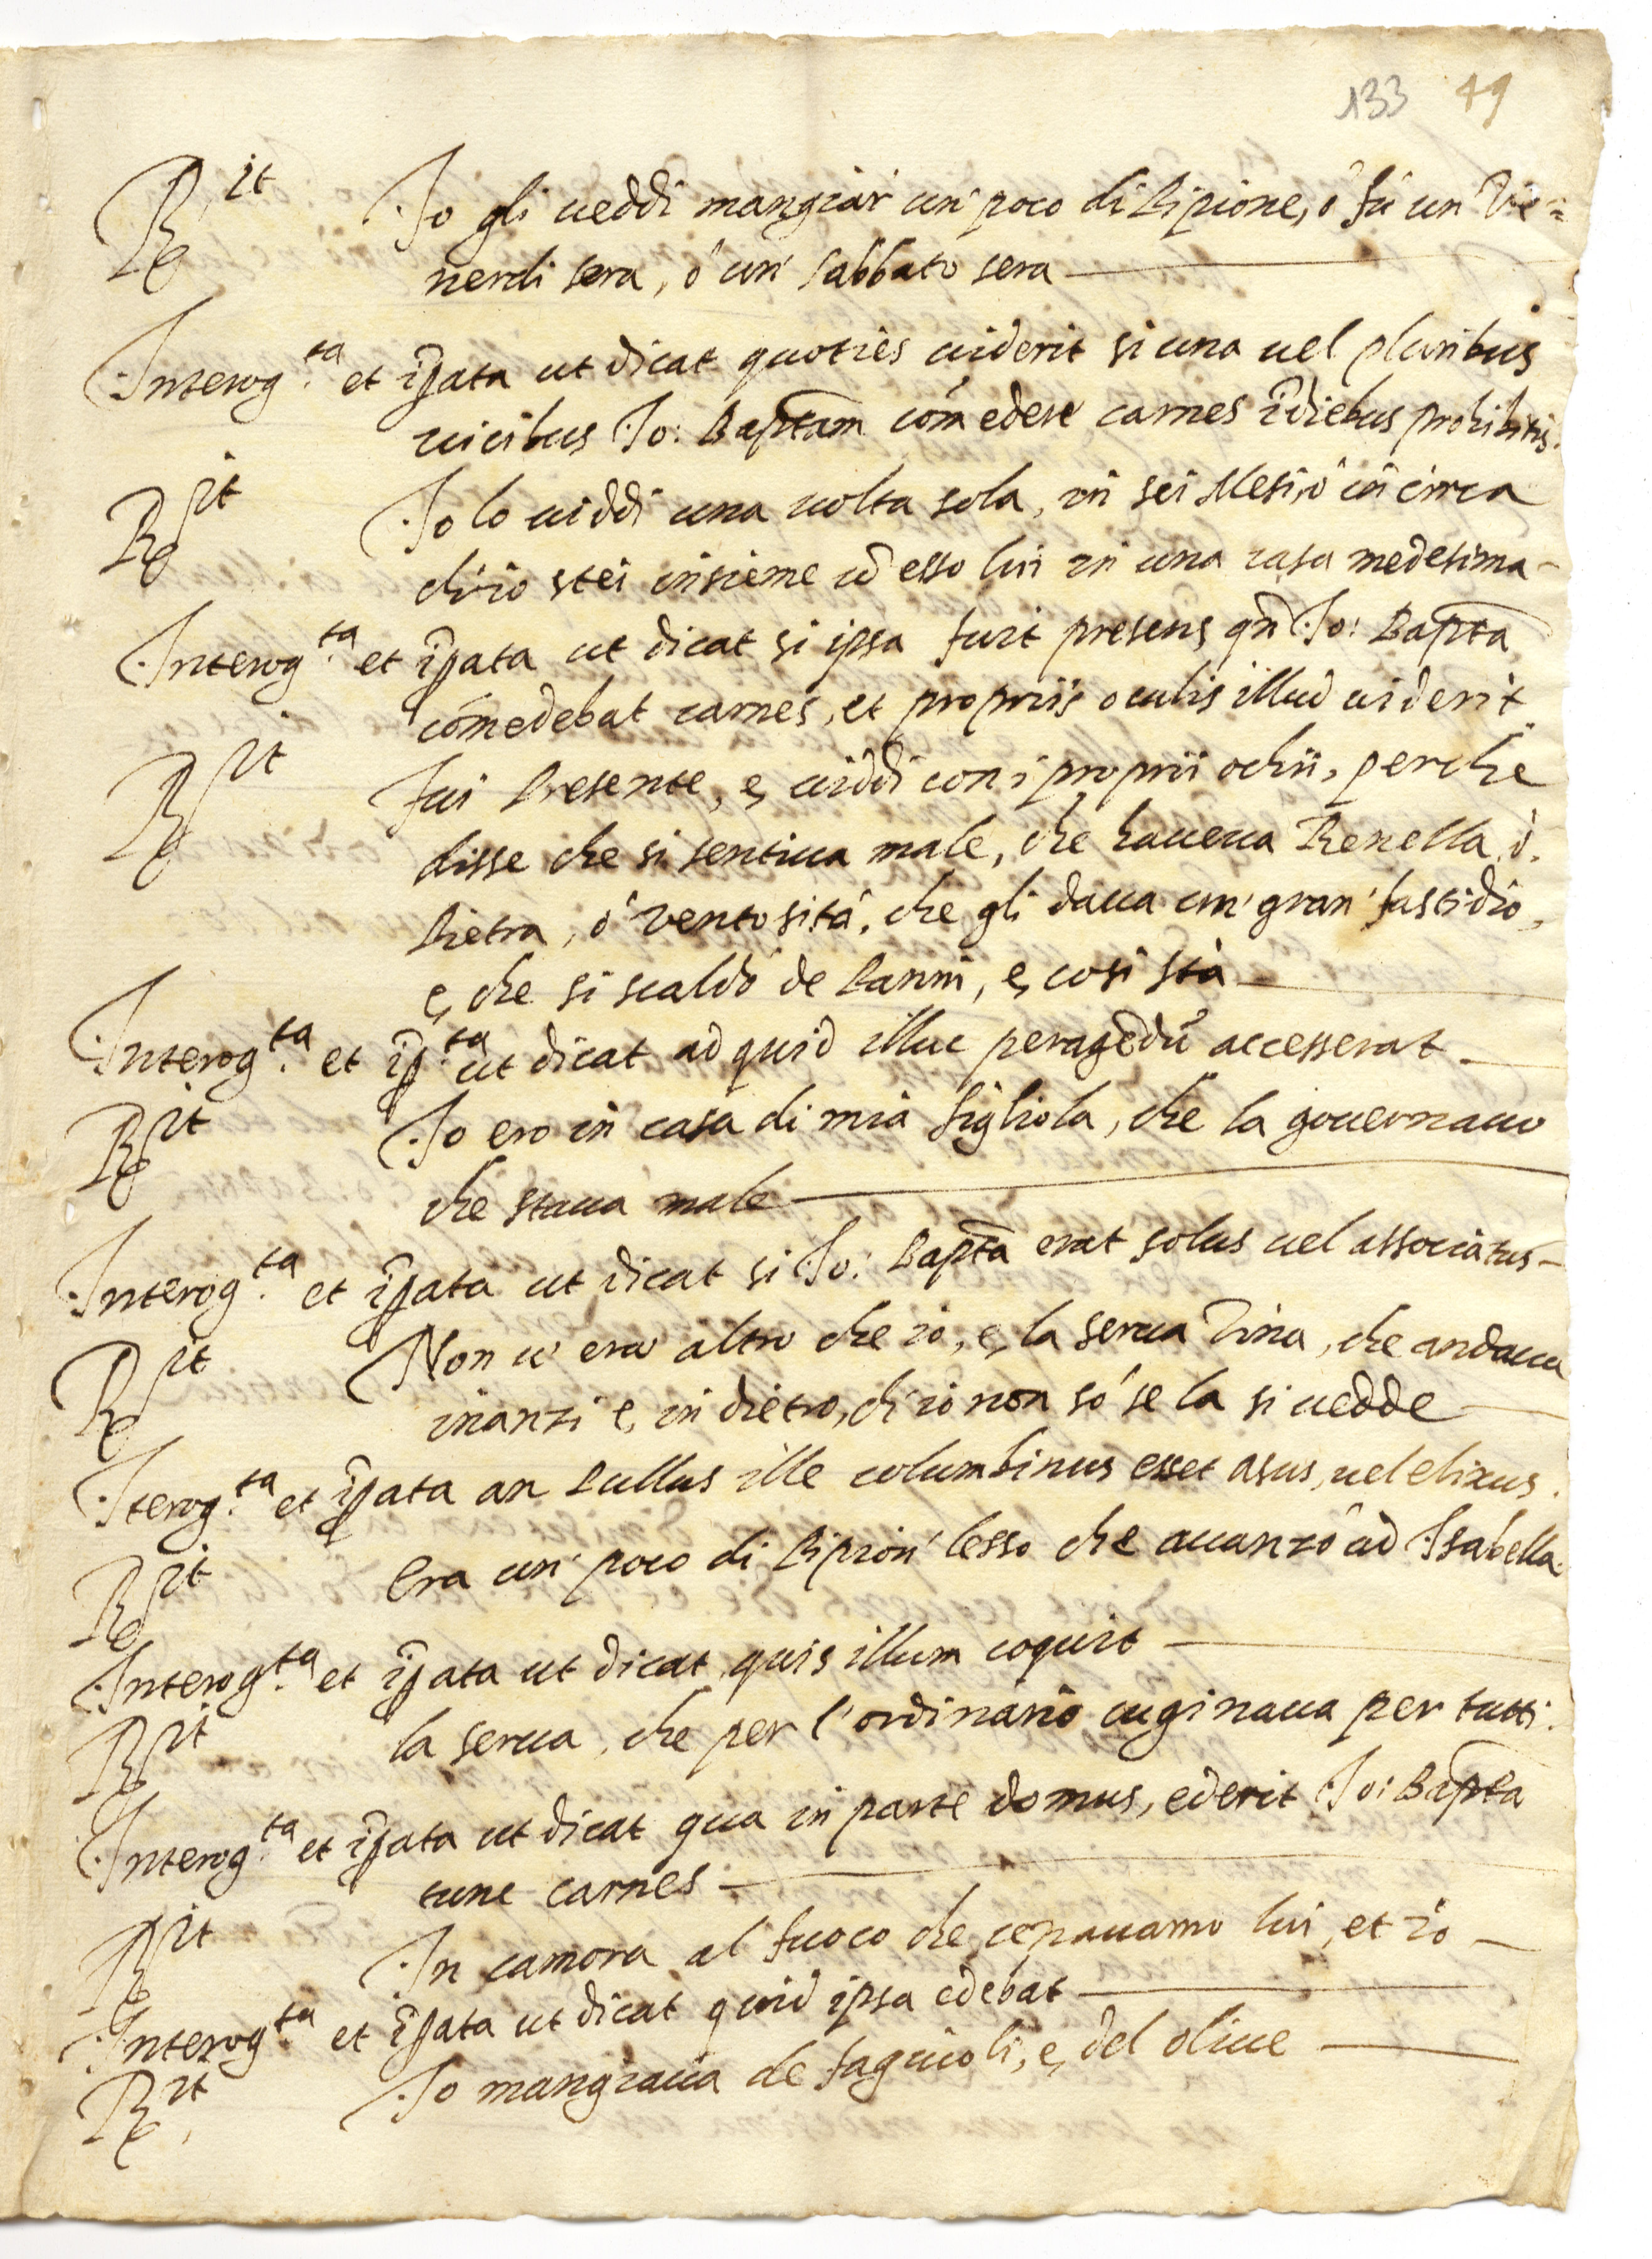 133 49
R.it Io gli ueddi mangiar un' poco di Pipione, ò fù un Ve=
nerdi sera, ò un' sabbato sera
Interog.ta et īpata ut dicat quoties uiderit si una uel pluribus
uicibus Io: Baptam comedere carnes ī diebus prohibitis.
R.it Io lo uiddi una uolta sola, in sei Mesi, ò in circa
ch'io stei insieme cō esso lui in una casa medesima
Interog.ta et īpata ut dicat si ipsa fuit presens qn̄ Io: Bapta
comedebat carnes, et propriis oculis illud uiderit
R.it Fui Presente, e, uiddi con i proprii ochii, perche
disse che si sentiua male, che haueua Renella, ò,
Pietra, ò ventosità, che gli daua un' gran' fastidio,
e, che si scaldò de Panni, e, cosi stà
Interog.ta et īp.ta ut dicat ad quid illuc peragēdū accesserat
R.it Io ero in casa di mia figliola, che la gouernauo
che staua male
Interog.ta et īpata ut dicat si Io: Bapta erat solus uel associatus
R.it Non u' era altro che io, e, la serua Dina, che andaua
inanzi e, in dietro, ch'io non sò se la si uedde
Iterog.ta et īpata an Pullus ille columbinus esset asus, uel elixus.
R.it Era un' poco di Pipion' lesso che auanzò ad Isabella.
Interog.ta et īpata ut dicat quis illum coquit
R.it la serua, che per l'ordinario cuginaua per tutti.
Interog.ta et īpata ut dicat qua in parte domus, ederit Io: Bapta
tunc carnes
R.it In camora al fuoco che cenauamo lui, et io
Interog.ta et īpata ut dicat quid ipsa edebat
R.it Io mangiaua de fagiuoli, e, del oliue